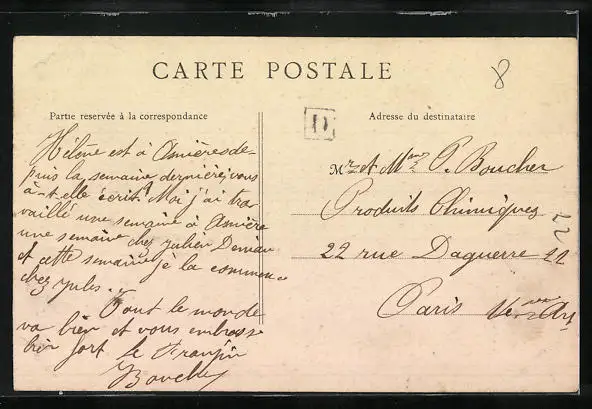 CARTE POSTALE
8
Partie reservée à la correspondance
D
Adresse du destinataire
Hélène est à Asnières de-
puis la semaine dernière, vous
a-t-elle écrit? Moi j'ai tra
vaillé une semaine à Asnière
une semaine chez Julien
et cette semaine je la commence
chez Jules. Tout le monde
va bien et vous embrasse
bien fort. le
Boucher
Mr et Mme P. Boucher
Produits Chimiques
22 rue Daguerre 22
Paris